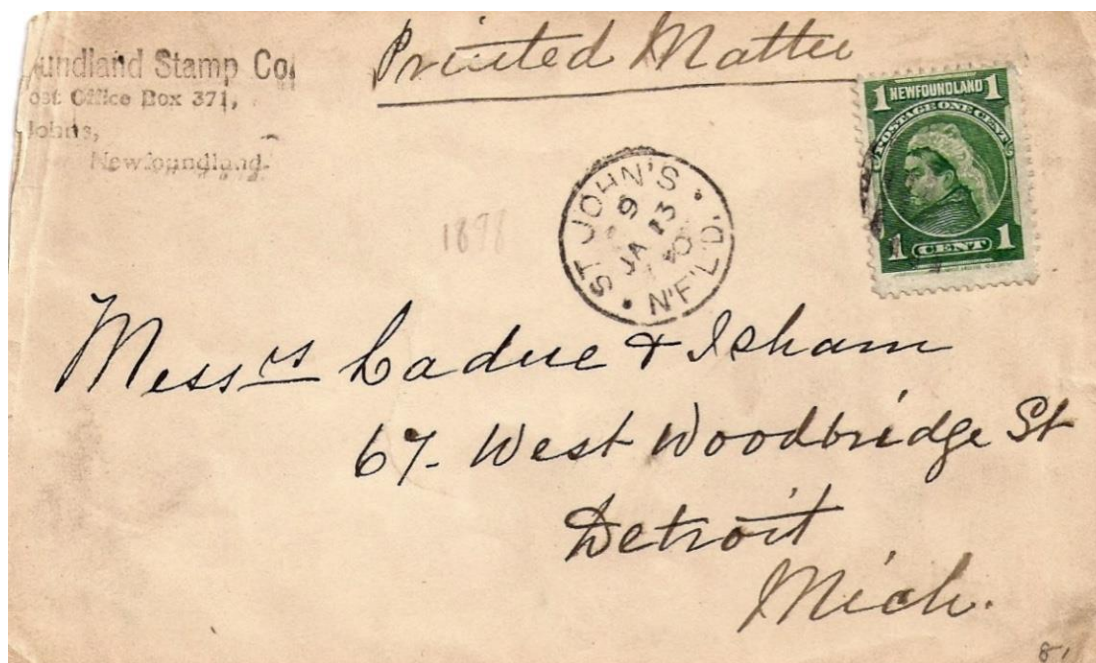 undland Stamp Co.
ost Office Box 371,
Johns,
Newfoundland.
Printed Matter
1 NEWFOUNDLAND 1
POSTAGE ONE CENT
1 CENT 1
ST JOHN'S
9
JA 13
N'F'L'D.
1898
Messrs Cadue & Isham
67. West Woodbridge St
Detroit
Mich.
81